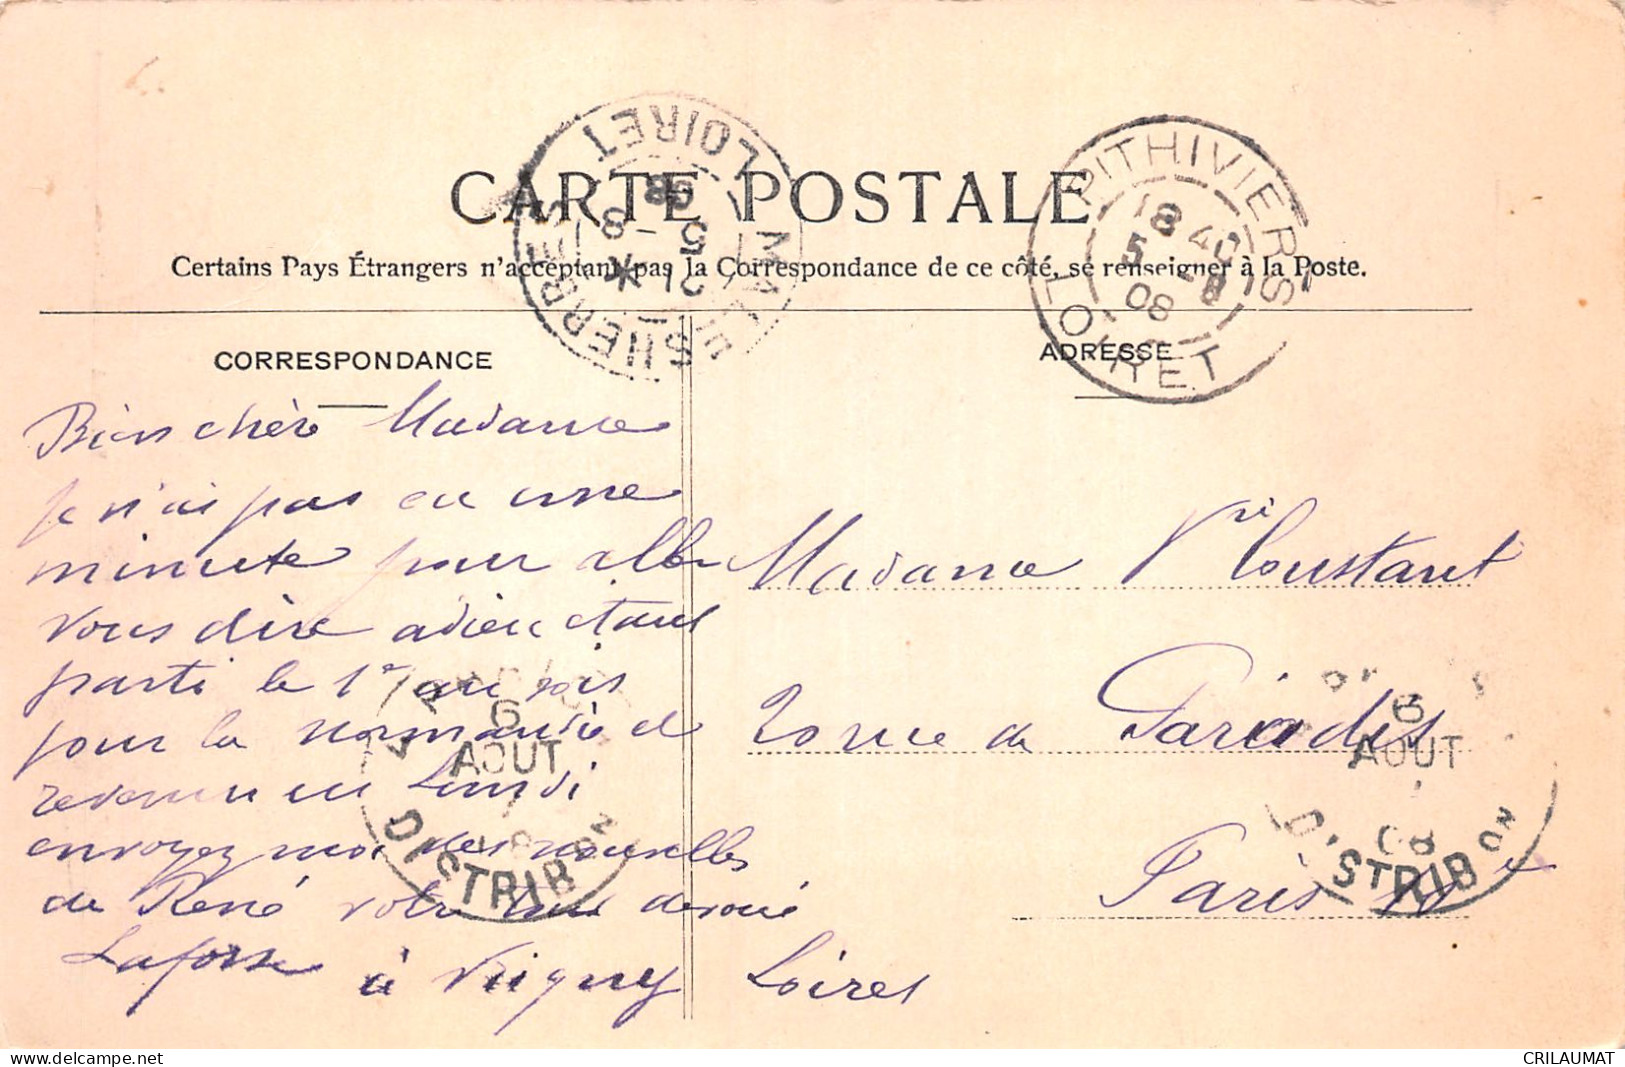 CARTE POSTALE
Certains Pays Étrangers n'acceptant pas la Correspondance de ce côté, se renseigner à la Poste.
CORRESPONDANCE
ADRESSE
MALESHERBES LOIRET
21 * 5 - 8 08
PITHIVIERS LOIRET
18 40
5 - 8
08
Bien chère Madame
je n'ai pas eu une
minute pour aller
vous dire adieu étant
parti le 1er au soir
pour la normandie et
revenu lundi
envoyez moi des nouvelles
de René votre ami devoué
Laforse à Vrigny Loiret
Madame Vve Coustant
rue de Paradis
Paris
6
AOUT
DISTRIBON
6
AOUT
08
DISTRIBON
CRILAUMAT